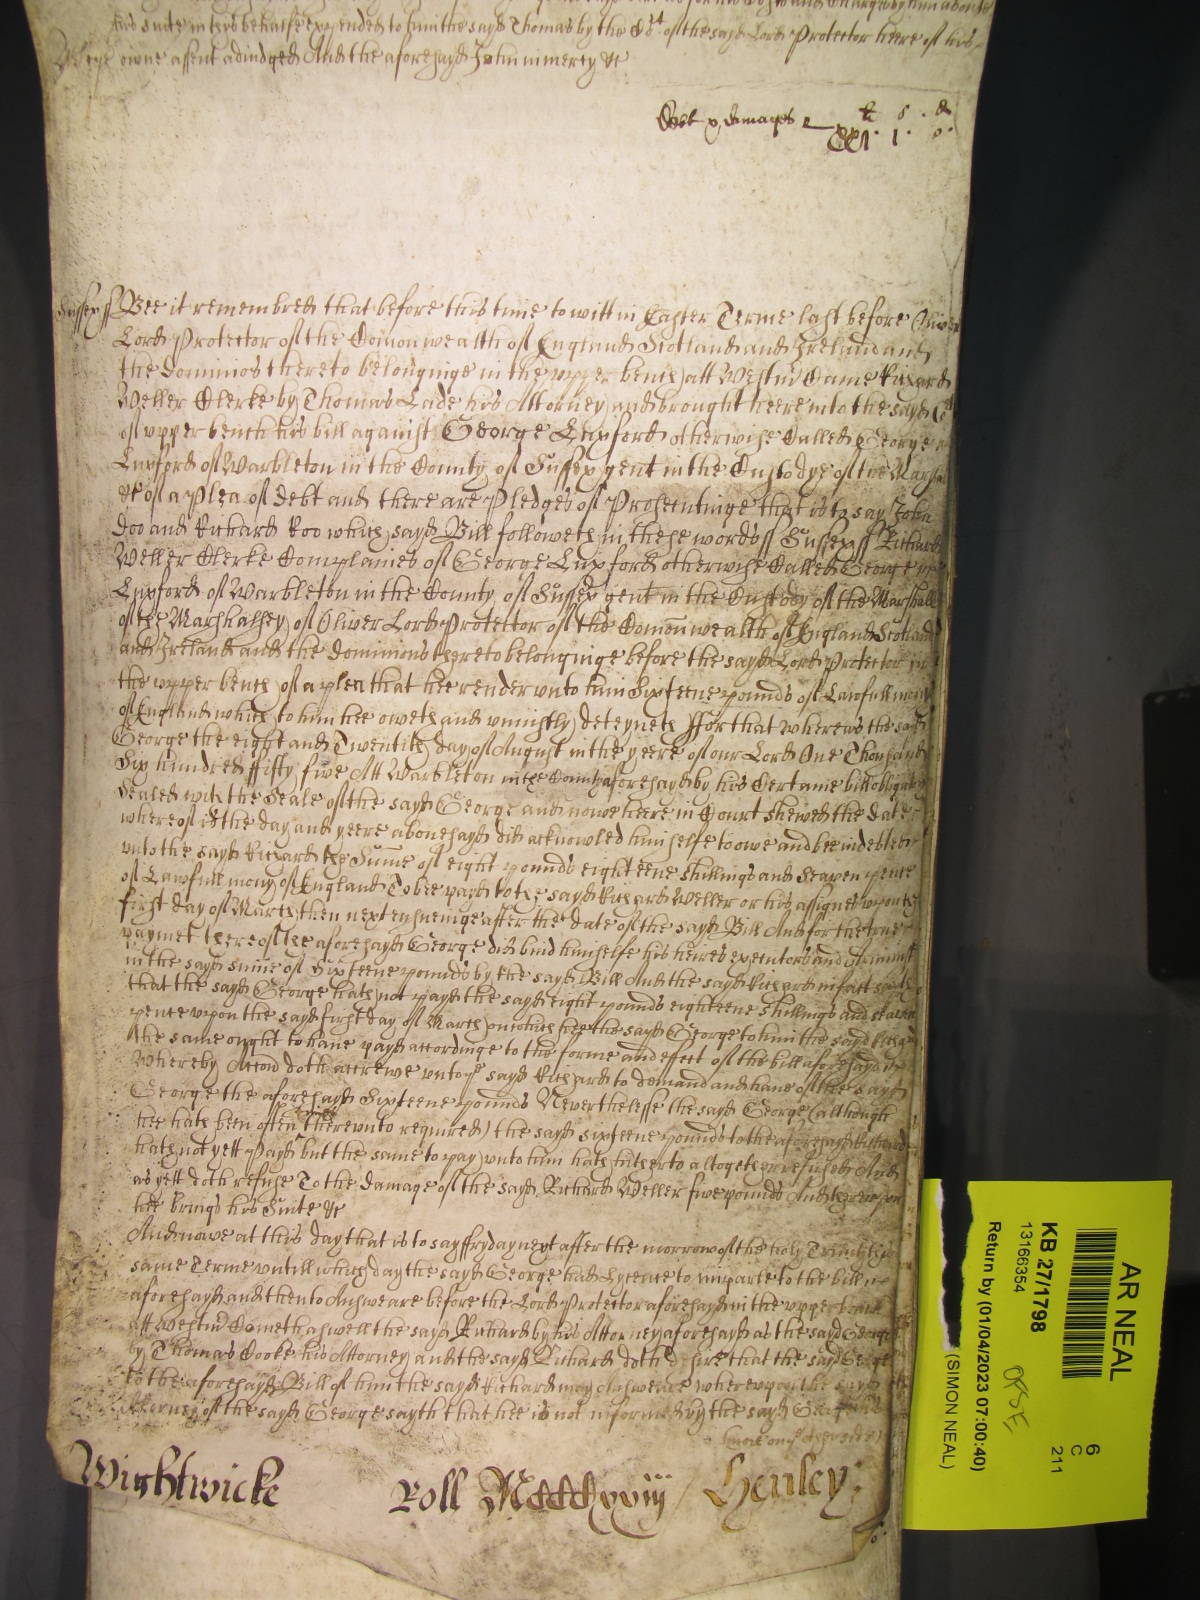 his suite in this behalfe expended to him the sayd Thomas by the Cort of the sayd Lord Protector heere of his
owne assent adiudged And the aforesayd John in mercy &c
Debt & damages li s d
xxi 1 0
Sussex ss Bee it remembred that before this time to witt in Easter Terme last before Oliver
Lord Protector of the Comonwealth of England Scotland and Ireland and
the dominios thereto belonginge in the upper bench att Westmr Came Richard
Weller Clerke by Thomas Lade his Attorney and brought heere into the sayd Cort
of upper bench his bill against George Luxford otherwise Called George
Luxford of Warbleton in the County of Sussex gent in the Custodye of the Marshall
&c of a Plea of debt and there are Pledges of Prosecutinge that is to say John
Doo and Richard Roo which sayd Bill followeth in these words ss Sussex ss Richard
Weller Clerke Complaines of George Luxford otherwise Called George
Luxford of Warbleton in the County of Sussex gent in the Custody of the Marshall
of the Marshallsey of Oliver Lord Protector of the Comonwealth of England Scotland
and Ireland and the dominions thereto belonginge before the sayd Lord Protector in
the upper bench of a plea that hee render unto him Sixteene pounds of Lawfull mony
of England which to him hee oweth and uniustly deteyneth ffor that whereas the sayd
George the eight and Twentith day of August in the yeere of our Lord One Thousand
Six hundred ffifty five Att Warbleton in the County aforesayd by his Certaine bill obligatory
Sealed with the Seale of the sayd George and nowe heere in Court shewed the date
whereof is the day and yeere abovesayd did acknowled himselfe to owe and bee indebted
unto the sayd Richard the Sume of eight pounds eighteene shillings and seaven pence
of Lawfull mony of England To bee payd to the sayd Richard Weller or his assignes upon the
first day of March then next ensueinge after the date of the sayd Bill And for the true
paymet thereof the aforesayd George did bind himselfe his heires executors and Administ
in the sayd sume of Sixteene pounds by the sayd Bill And the sayd Richard in fact saith
that the sayd George hath not payd the sayd eight pounds eighteene shillings and seaven
pence upon the sayd first day of March on which hee the sayd George to him the sayd Richard
the same ought to have payd accordinge to the forme and effect of the bill aforesayd
Whereby Accon doth accrewe unto ye sayd Richard to demand and have of the sayd
George the aforesayd Sixteene pounds Neverthelesse the sayd George (although
hee hath been often thereunto required) the sayd sixteene pounds to the aforesayd Richard
hath not yett Payd but the same to pay unto him hath hitherto altogether refused And
as yett doth refuse To the damage of the sayd Richard Weller five pounds And thereupon
hee brings his Suite &c
And nowe at this day that is to say ffryday next after the morrow of the holy Trinity this
same Terme untill which day the sayd George had Lycence to imparle to the bill
aforesayd and then to Answeare before the Lord Protector aforesayd in the upper bench
att Westmr Cometh aswell the sayd Richard by his Attorney aforesayd as the sayd George
by Thomas Cooke his Attorney and the sayd Richard doth desire that the sayd George
to the aforesayd Bill of him the sayd Richard may Answeare whereupon the sayd
Attorney of the sayd George sayth that hee is not informed by the sayd George
Wightwicke Roll Mccccxxviij Henley
AR NEAL
6
C
211
KB 27/1798
13166354
OPSF
Return by (01/04/2023 07:00:40)
(SIMON NEAL)